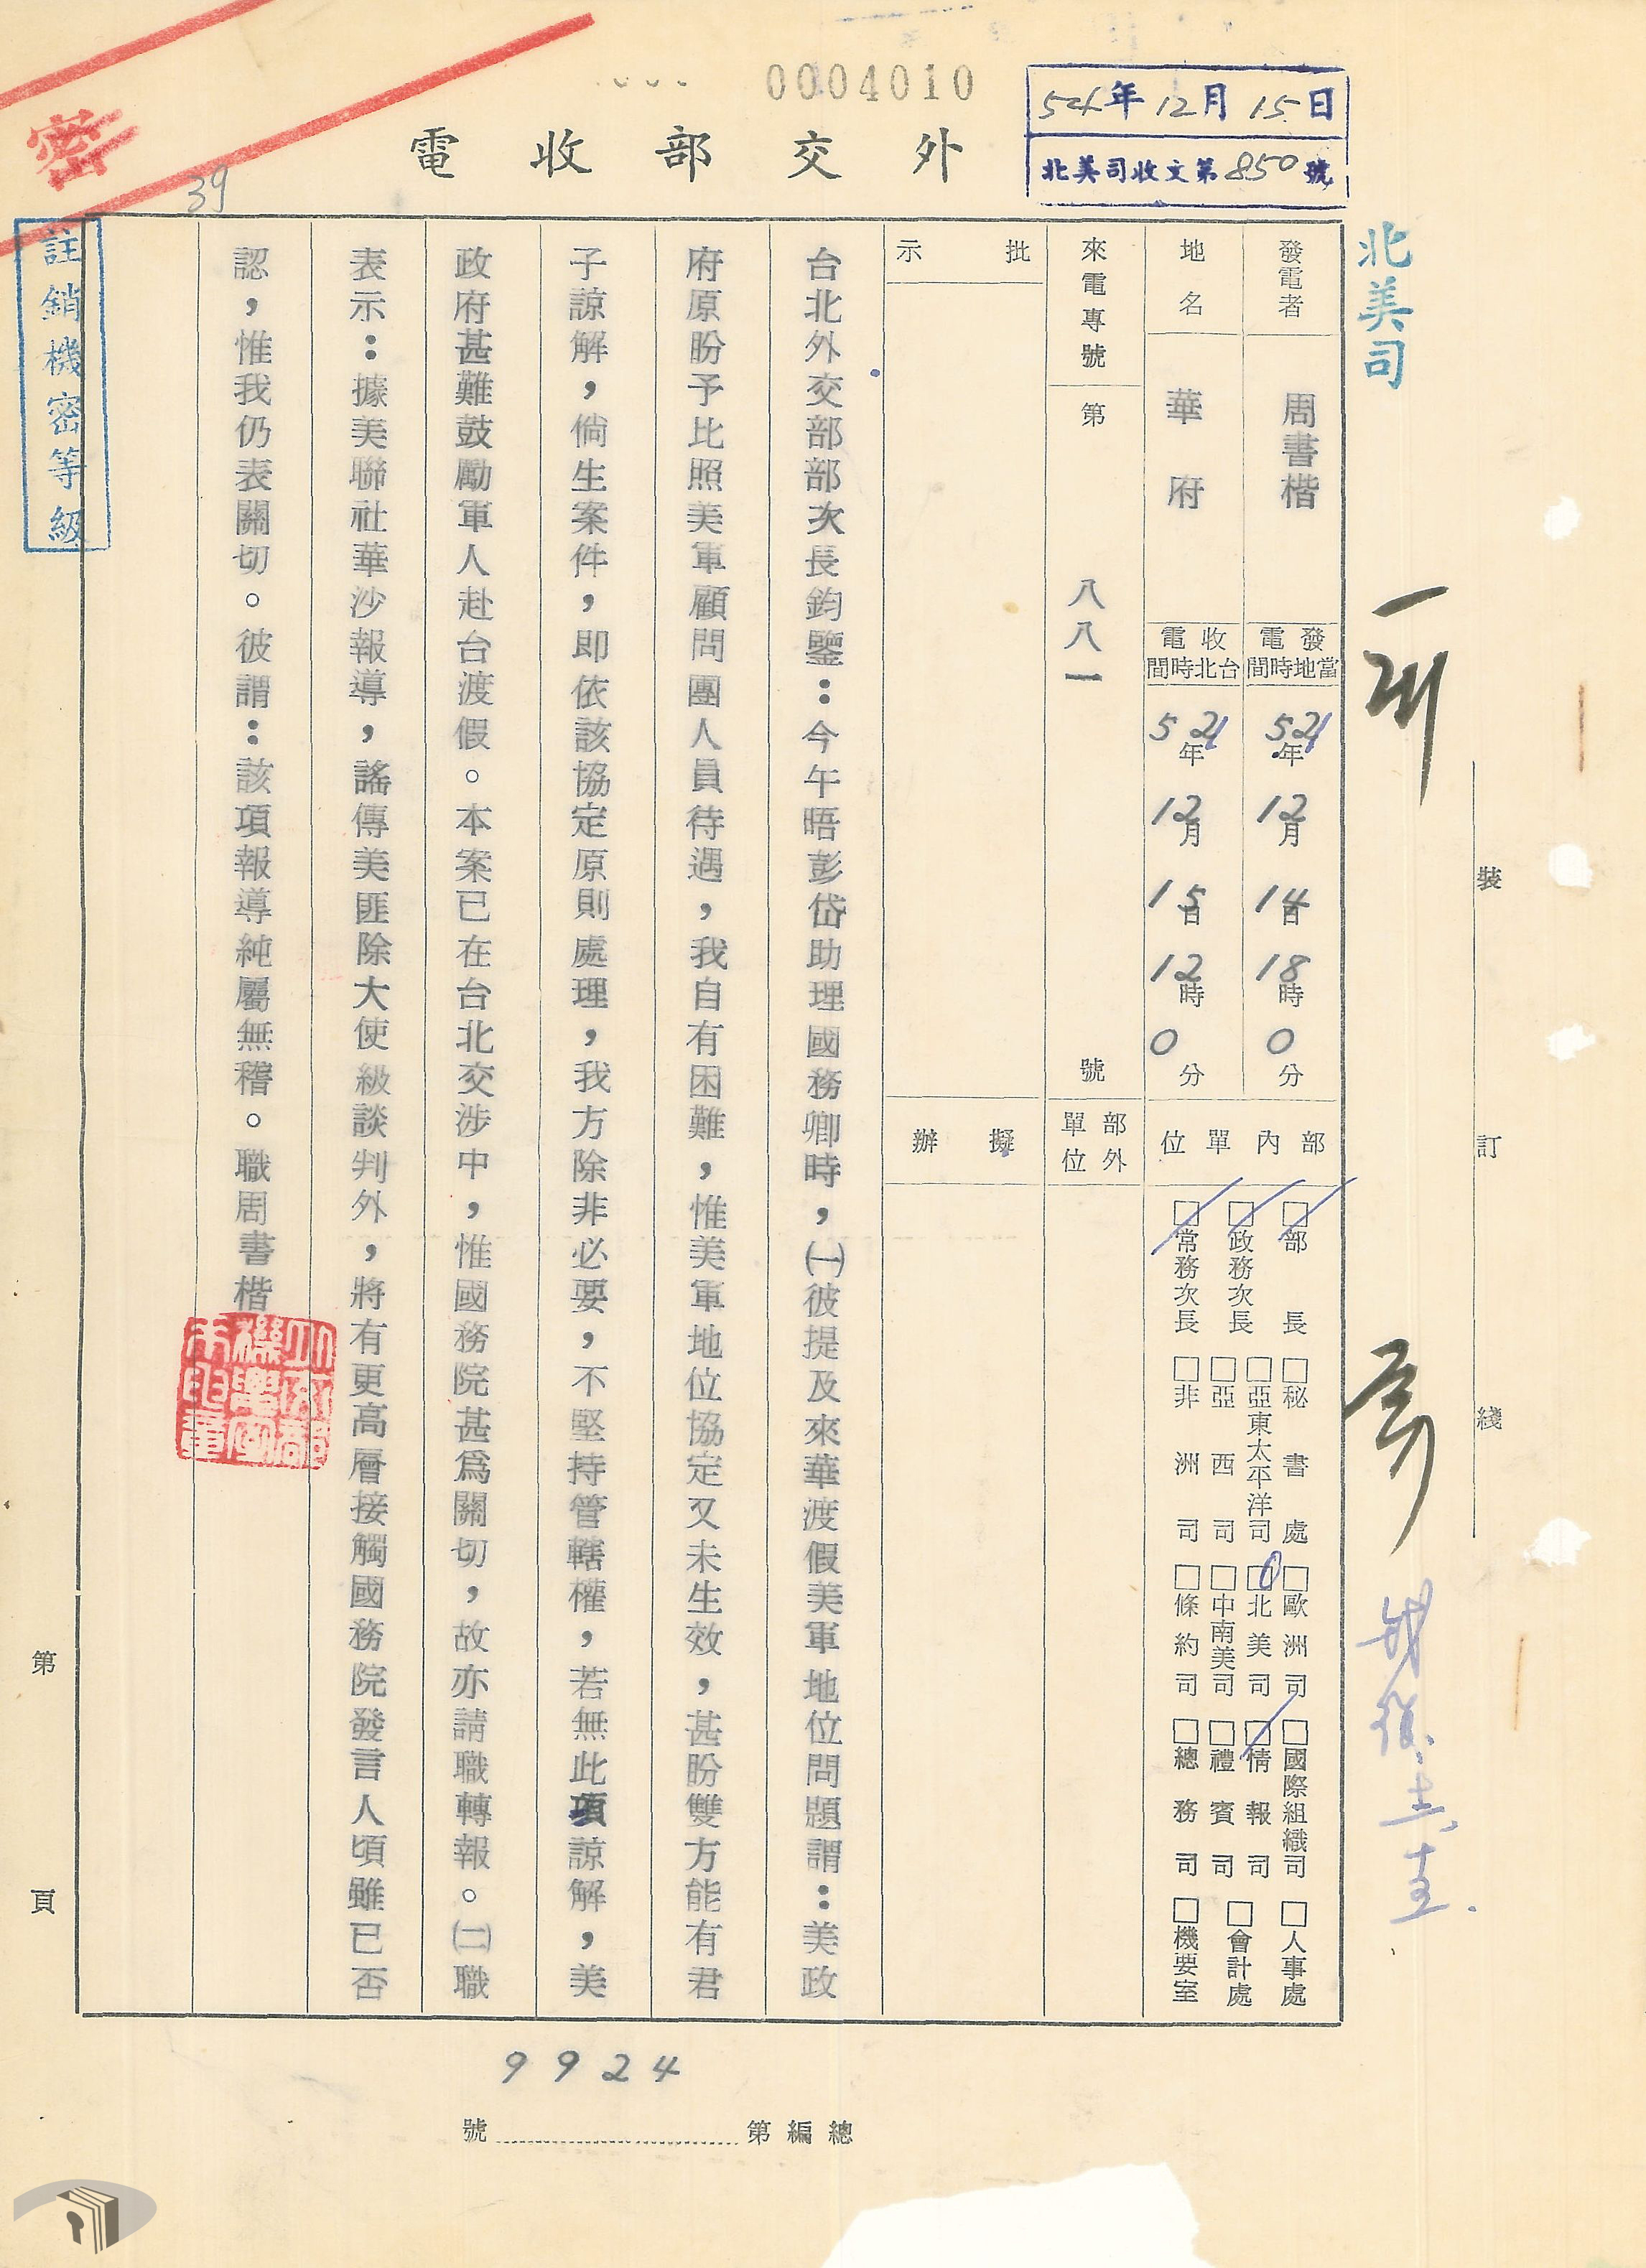 0004010
54年12月15日
北美司收文第850號
外交部收電
密
39
註銷機密等級
北美司
發電者 周書楷
地名 華府
發電當地時間 54年12月14日18時0分
收電台北時間 54年12月15日12時0分
來電專號 第八八一號
部內單位
□部長
□政務次長
□常務次長
□秘書處
□亞東太平洋司
□亞西司
□非洲司
□歐洲司
□北美司
□中南美司
□條約司
□國際組織司
□情報司
□禮賓司
□總務司
□人事處
□會計處
□機要室
部外單位
批示
擬辦
台北外交部部次長鈞鑒：今午晤彭岱助理國務卿時，㈠彼提及來華渡假美軍地位問題謂：美政
府原盼予比照美軍顧問團人員待遇，我自有困難，惟美軍地位協定又未生效，甚盼雙方能有君
子諒解，倘生案件，即依該協定原則處理，我方除非必要，不堅持管轄權，若無此項諒解，美
政府甚難鼓勵軍人赴台渡假。本案已在台北交涉中，惟國務院甚為關切，故亦請職轉報。㈡職
表示：據美聯社華沙報導，謠傳美匪除大使級談判外，將有更高層接觸國務院發言人頃雖已否
認，惟我仍表關切。彼謂：該項報導純屬無稽。職周書楷
裝
訂
綫
第
頁
9924
總編第 號